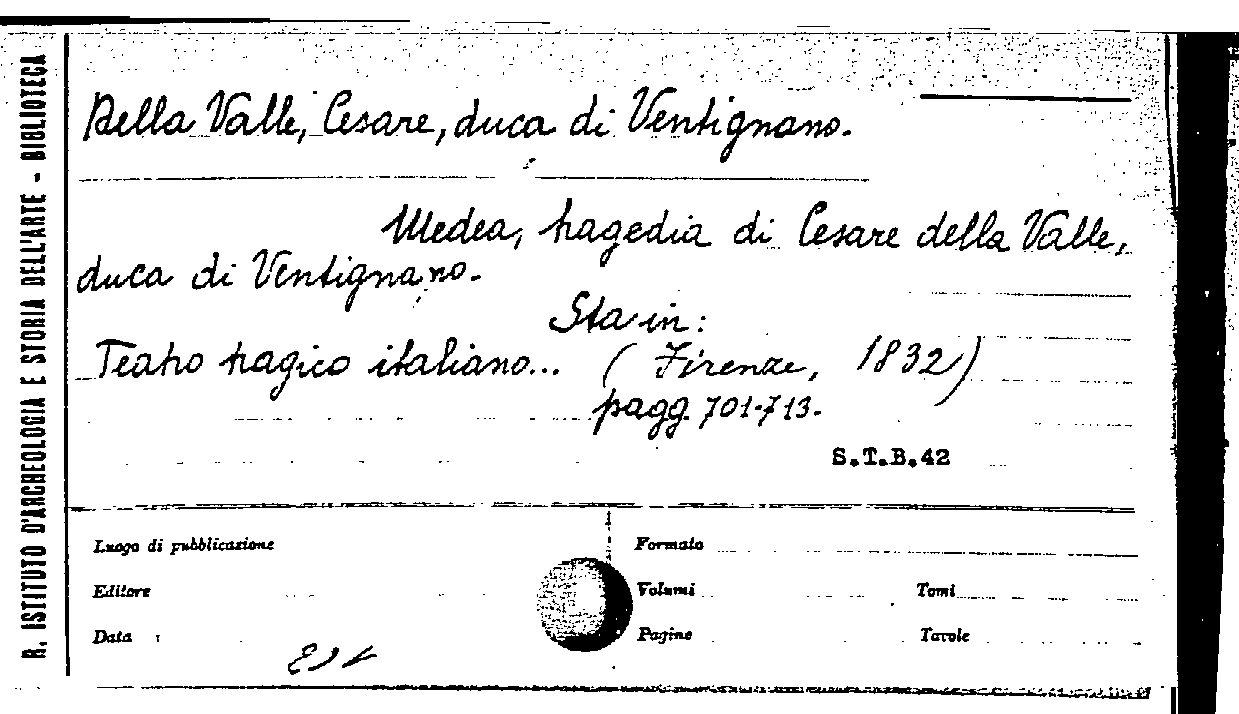 R. ISTITUTO D'ARCHEOLOGIA E STORIA DELL'ARTE - BIBLIOTECA
Della Valle, Cesare, duca di Ventignano.
Medea, tragedia di Cesare della Valle,
duca di Ventignano.
Sta in:
Teatro tragico italiano... (Firenze, 1832)
pagg. 701-713.
S.T.B.42
Luogo di pubblicazione
Formato
Editore
Volumi
Tomi
Data
Pagine
Tavole